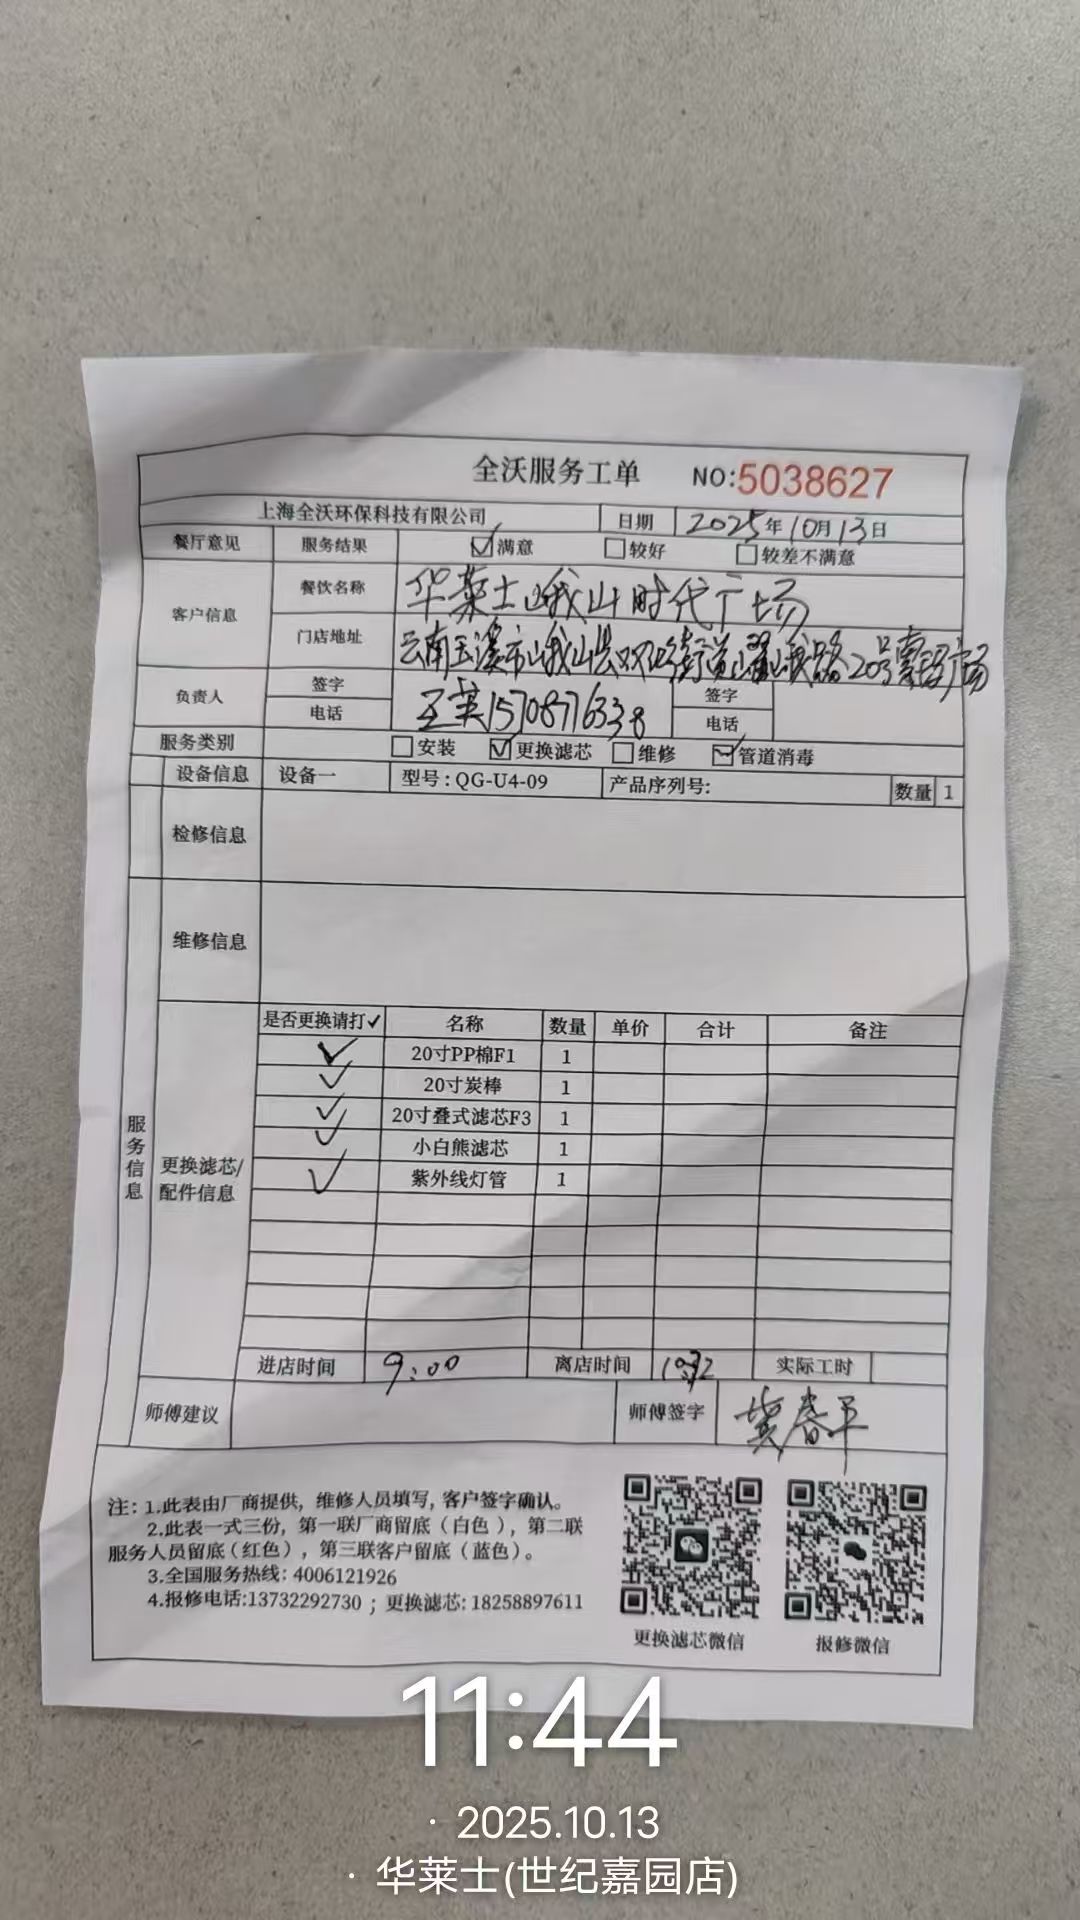 全沃服务工单 NO:5038627
上海全沃环保科技有限公司 日期 2025年10月13日
餐厅意见 服务结果 ☑满意 □较好 □较差不满意
客户信息 餐饮名称 华莱士峨山时代广场
门店地址 云南玉溪市峨山县双江街道 峨路20号 广场
负责人 签字 王英15708776338 签字
电话 电话
服务类别 □安装 ☑更换滤芯 □维修 ☑管道消毒
设备信息 设备一 型号:QG-U4-09 产品序列号: 数量 1
检修信息
维修信息
服务信息
更换滤芯/配件信息
是否更换请打✓ 名称 数量 单价 合计 备注
✓ 20寸PP棉F1 1
✓ 20寸炭棒 1
✓ 20寸叠式滤芯F3 1
✓ 小白熊滤芯 1
✓ 紫外线灯管 1
进店时间 9:00 离店时间 实际工时
师傅建议 师傅签字 龚春平
注: 1.此表由厂商提供, 维修人员填写, 客户签字确认。
2.此表一式三份, 第一联厂商留底 (白色), 第二联
服务人员留底 (红色), 第三联客户留底 (蓝色)。
3.全国服务热线: 4006121926
4.报修电话:13732292730 ; 更换滤芯: 18258897611
更换滤芯微信 报修微信
11:44
· 2025.10.13
· 华莱士(世纪嘉园店)